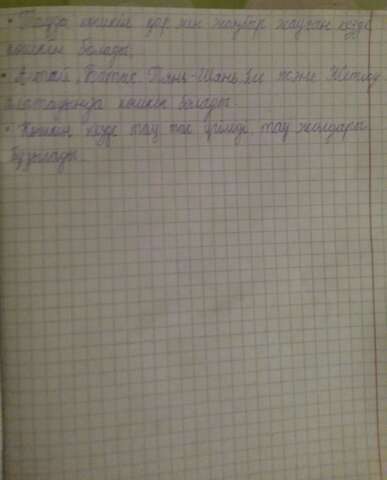 • Тауда көшкін қар мен жаңбыр жауған кезде
көшкін болады.
• Алтай, Батыс Тянь-Шань, Іле және Жетісу
Алатауында көшкін болады
• Көшкін кезде тау, тас үгіледі, тау жолдары
бұзылады.